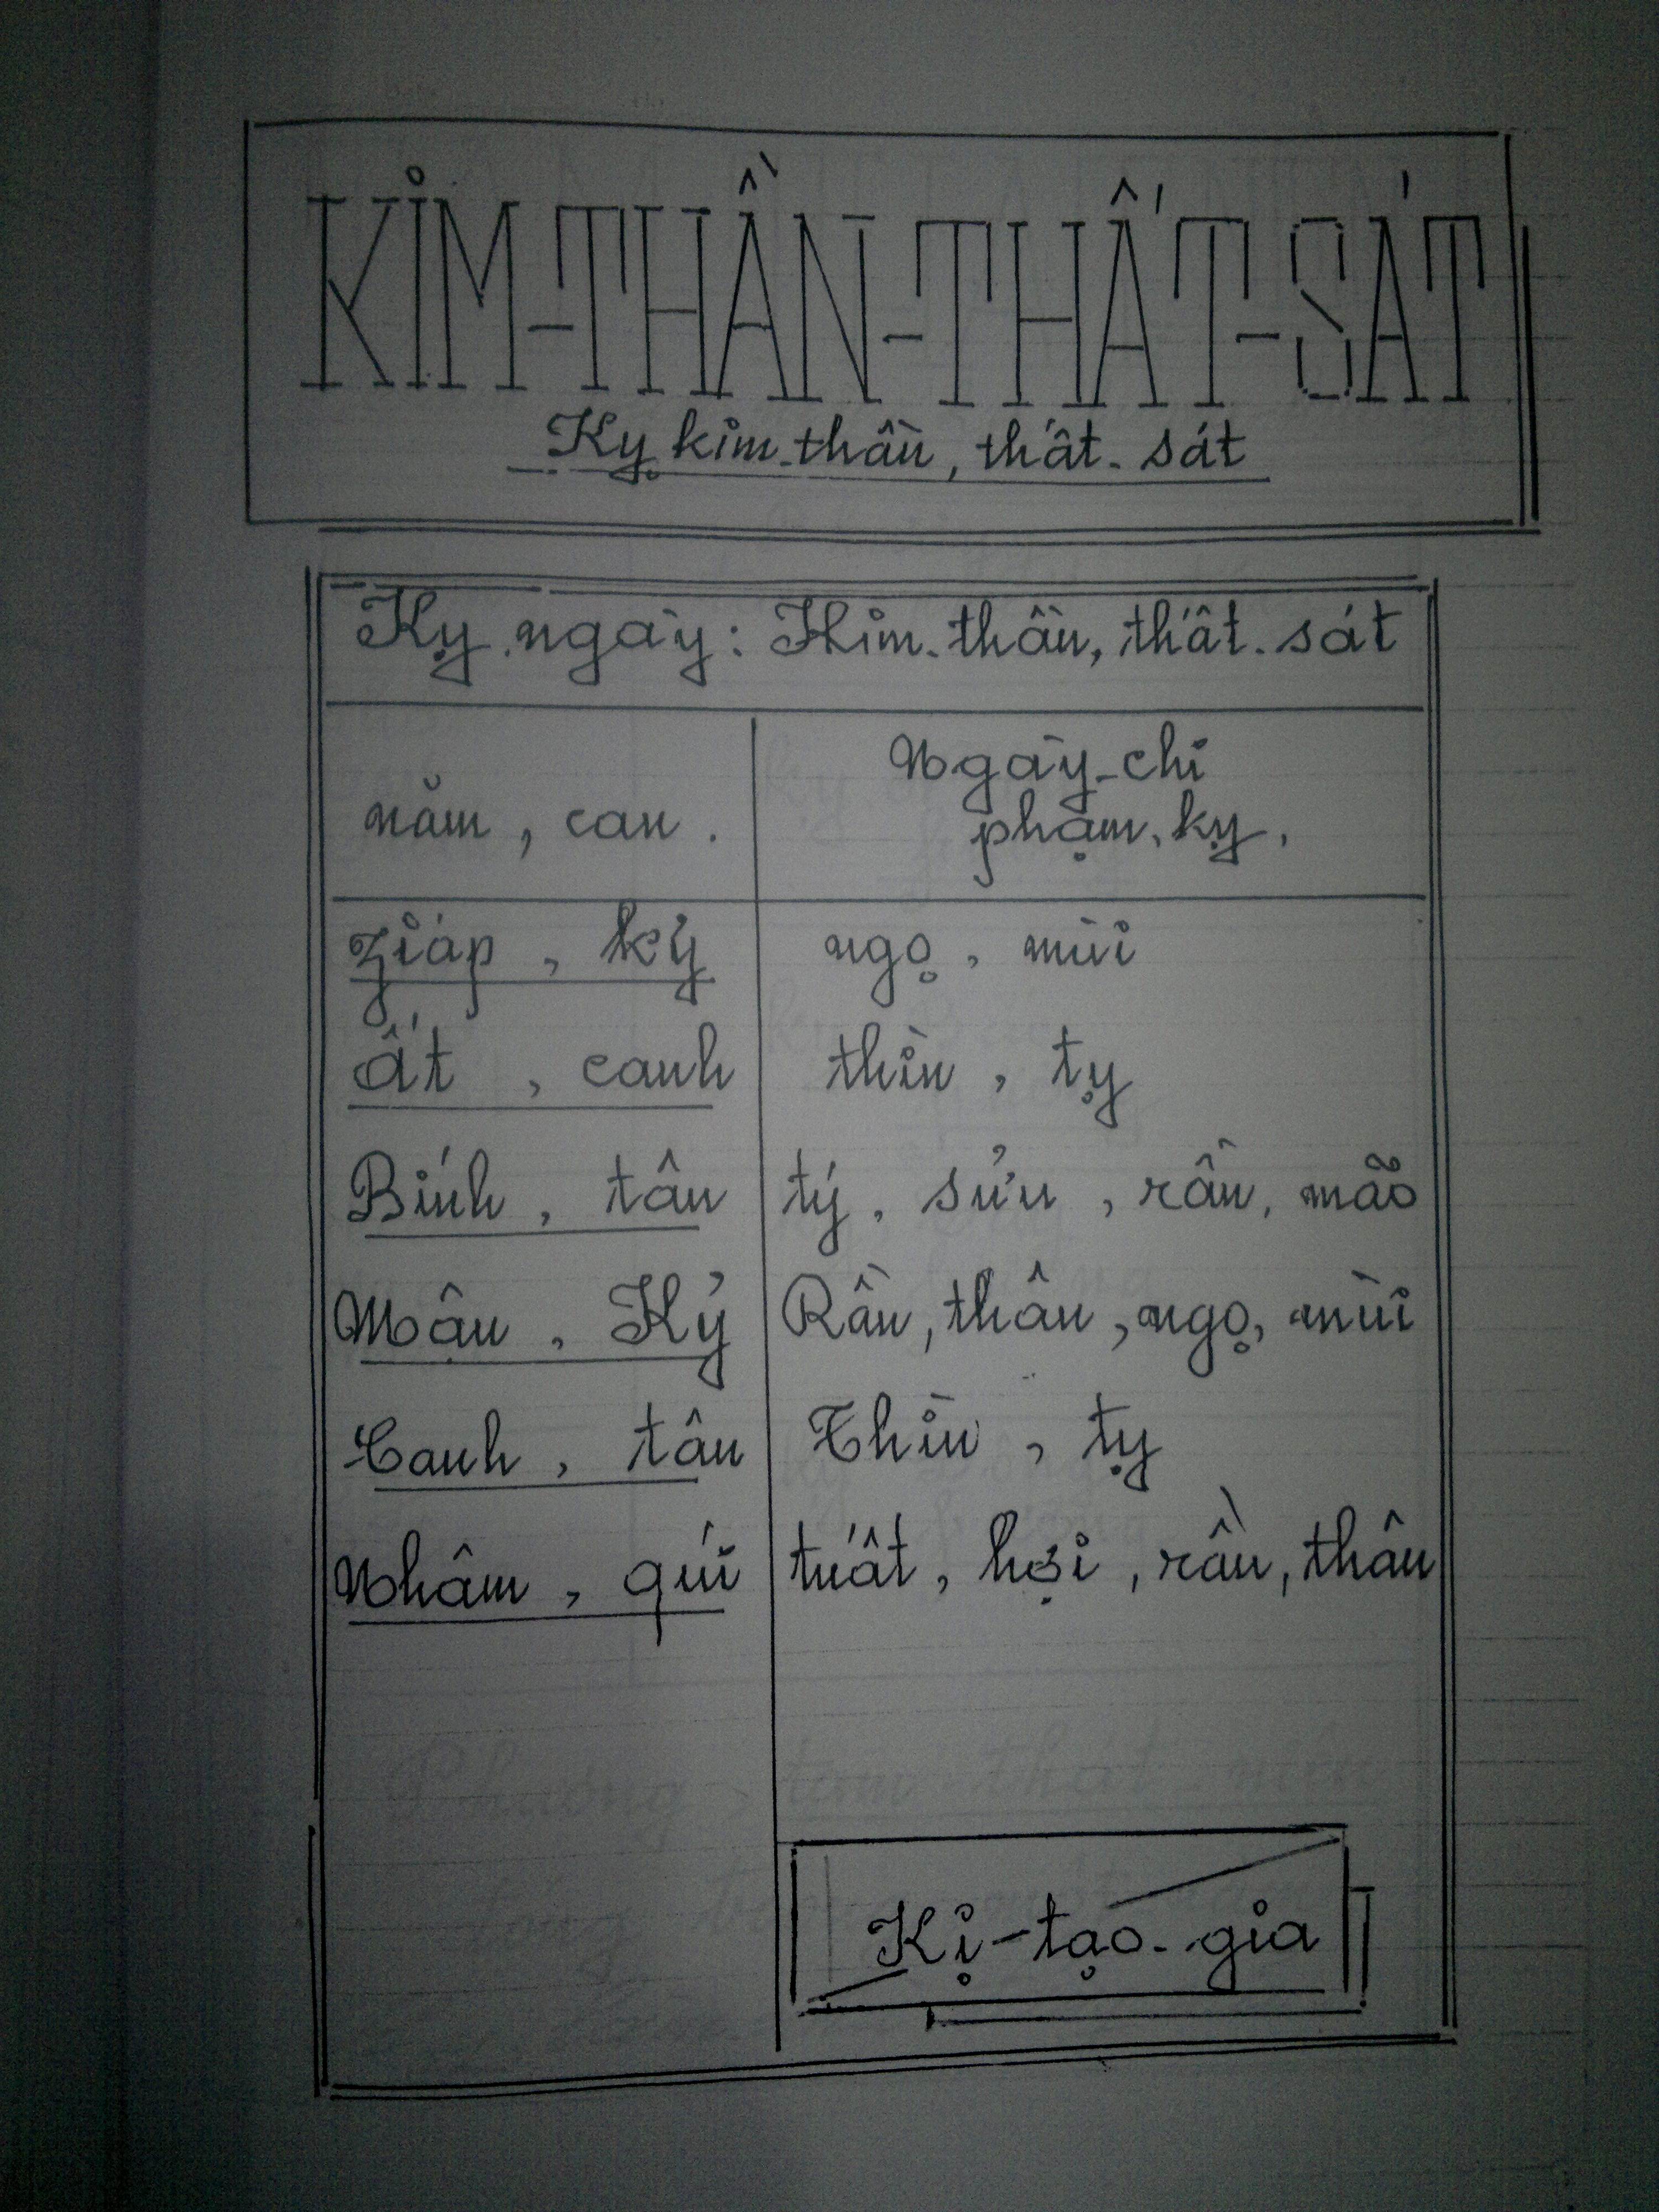 KIM-THẦN-THẤT-SÁT
Kỵ kim-thần, thất-sát
Kỵ ngày: Kim-thần, thất-sát
năm, can.
Ngày-chi
phạm, kỵ,
giáp, kỷ ngọ, mùi
ất, canh thìn, tỵ
Bính, tân tý, sửu, rần, mão
Mậu, Kỷ Rần, thân, ngọ, mùi
Canh, tân Thìn, tỵ
Nhâm, quí tuất, hợi, rần, thân
Kị-tạo-gia